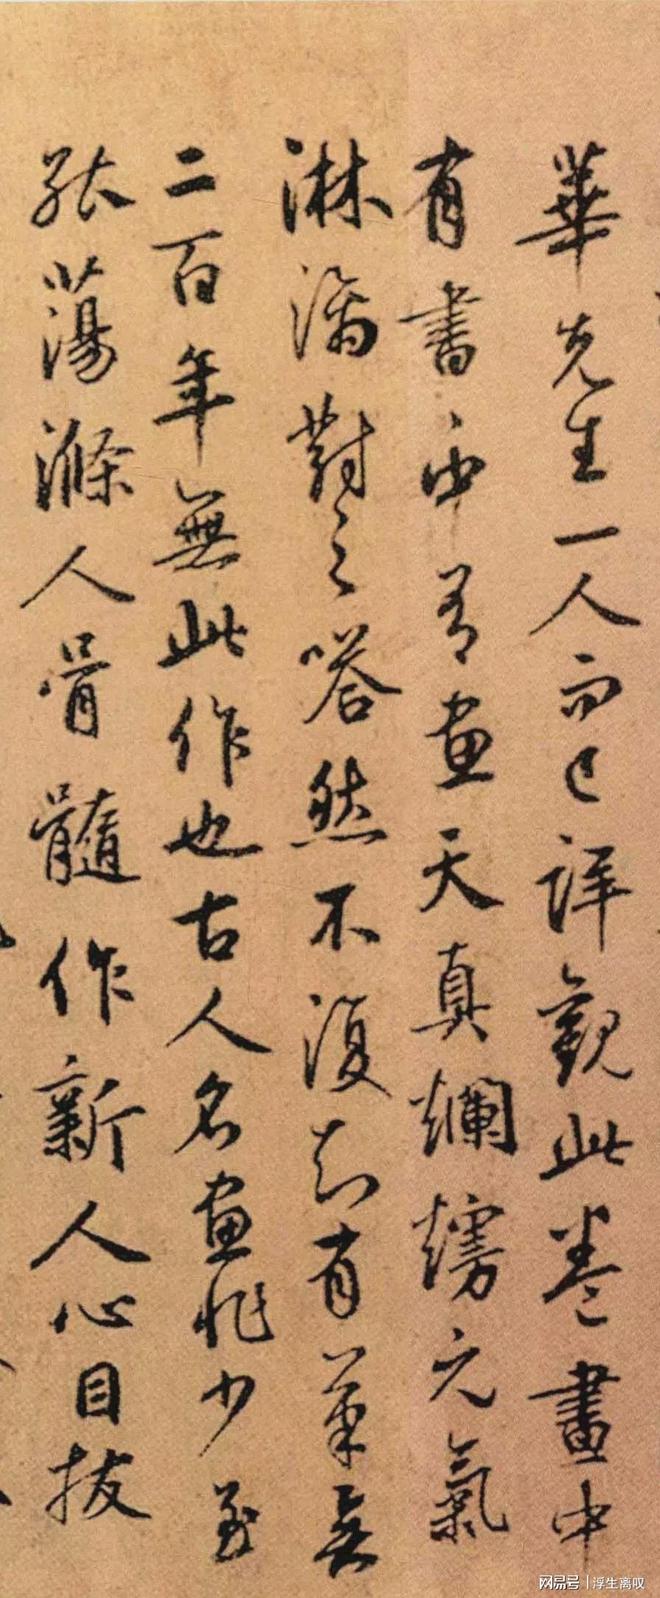 華先生一人而已詳觀此卷畫中
有書書中有畫天真爛熳元氣
淋漓對之嗒然不復知有筆矣
二百年無此作也古人名畫非少至
能蕩滌人骨髓作新人心目拔
网易号 | 浮生离叹